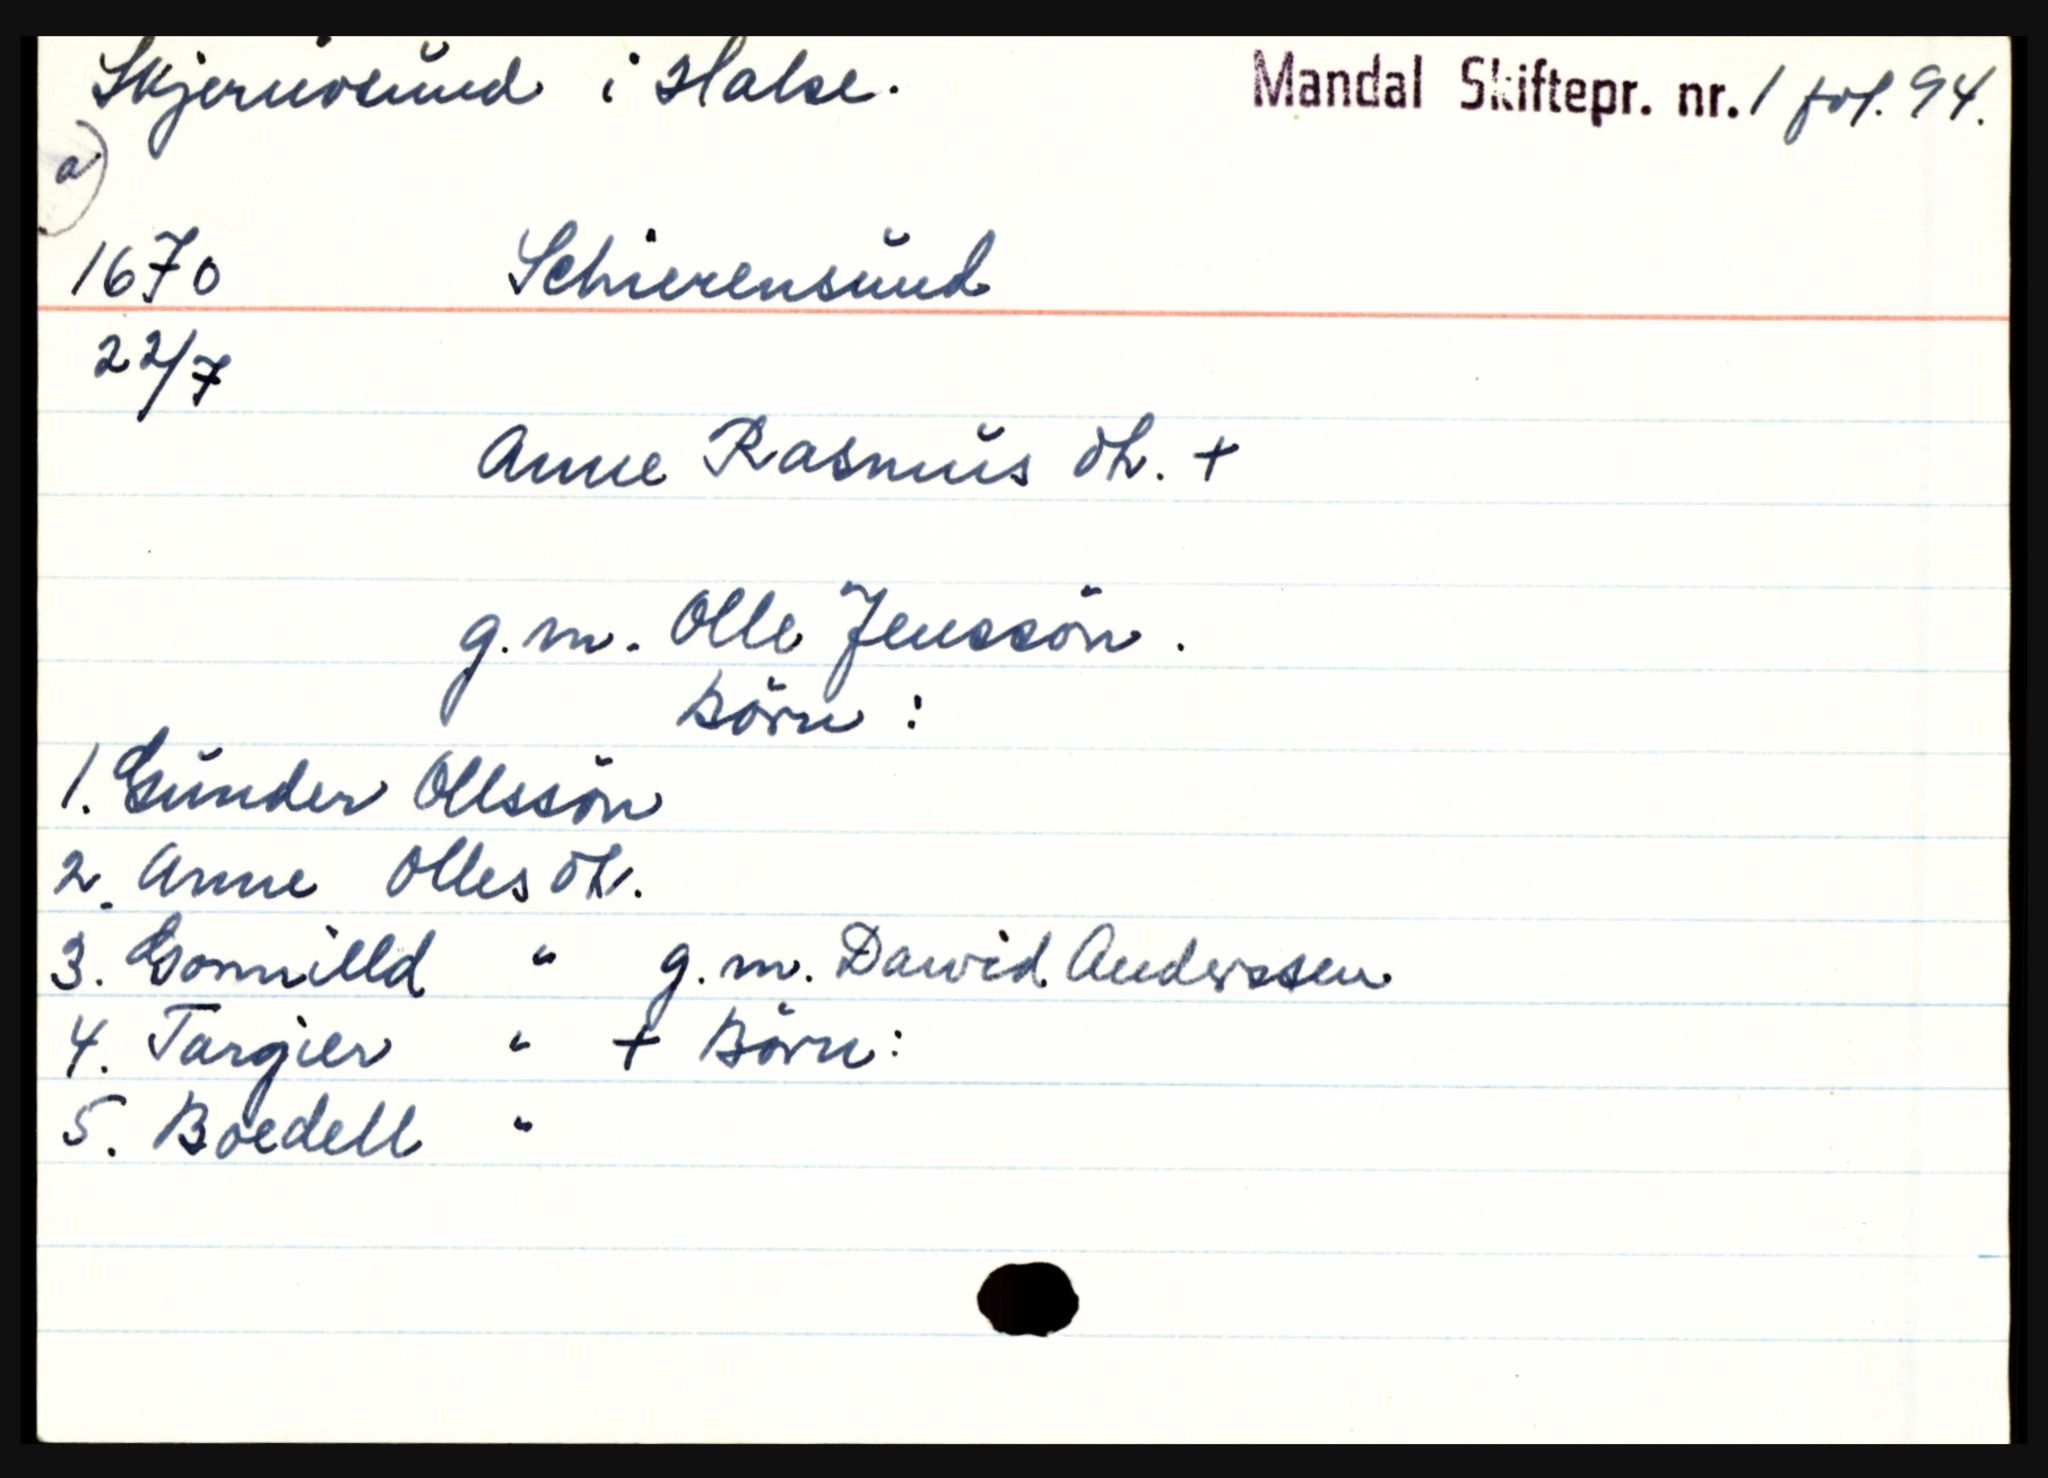 Skjernøsund i Halse. Mandal Skiftepr. nr. 1 fol. 94.
a)
1670 Schierensund
22/7
Anne Rasmus dt. +
g.m. Olle Jenssön.
Börn:
1. Gunder Ollssön
2. Anne Olles dt.
3. Gonnilld " g.m. Dawid Anderssen
4. Targier " + Börn:
5. Boedell "